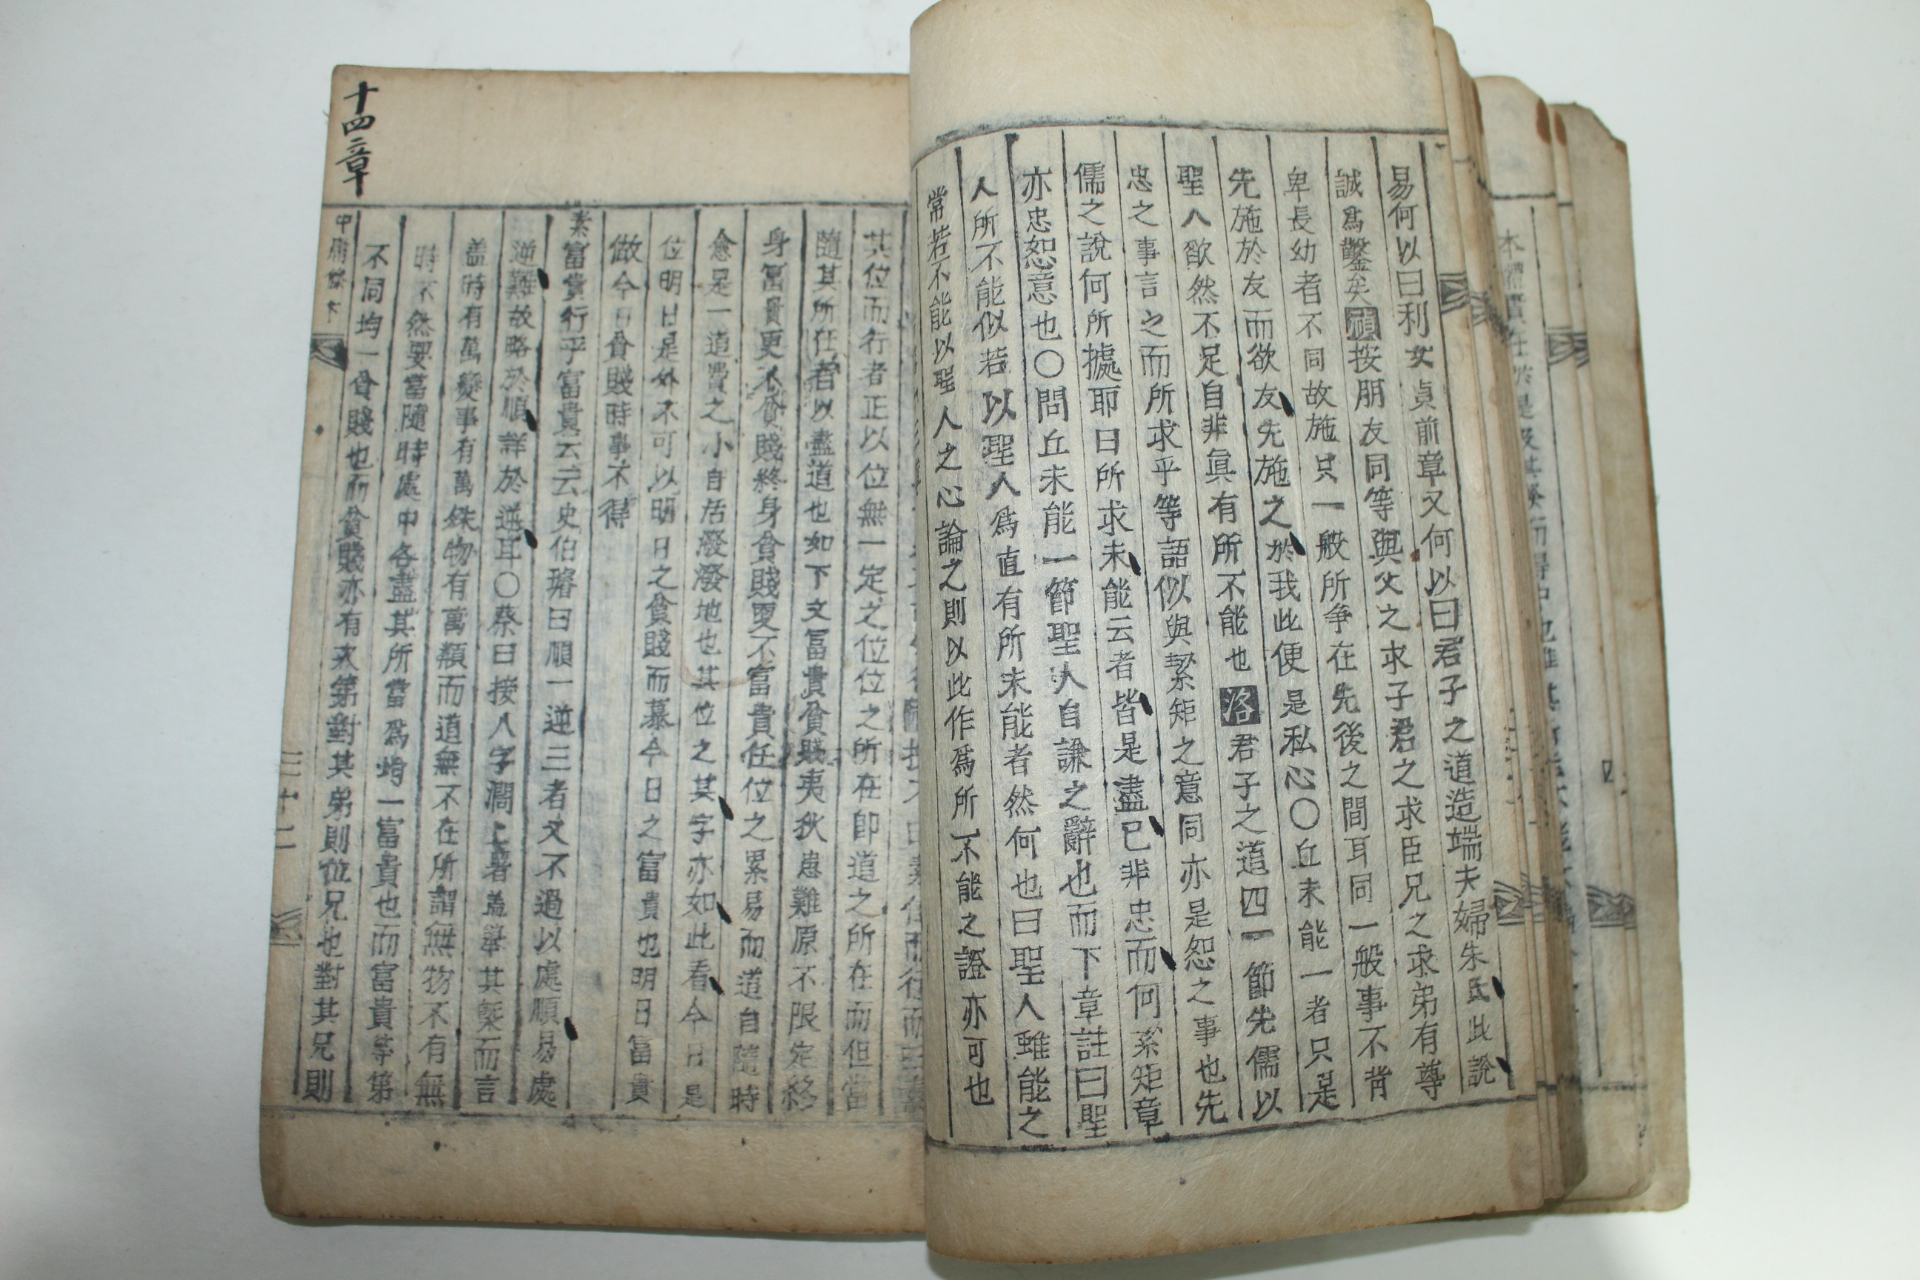 易何以曰利女貞前章又何以曰君子之道造端夫婦朱氏此說
誠爲鑿矣 按朋友同等與父之求子君之求臣兄之求弟有尊
卑長幼者不同故施只一般所爭在先後之間耳同一般事不肯
先施於友而欲友先施之於我此便是私心〇丘未能一者只是
聖人欿然不足自非眞有所不能也 洛 君子之道四一節先儒以
忠之事言之而所求乎等語似與絜矩之意同亦是恕之事也先
儒之說何所據耶曰所求未能云者皆是盡己非忠而何絜矩章
亦忠恕意也〇問丘未能一節聖人自謙之辭也而下章註曰聖
人所不能似若以聖人爲直有所未能者然何也曰聖人雖能之
常若不能以聖人之心論之則以此作爲所不能之證亦可也
其位而行者正以位無一定之位位之所在卽道之所在而但當
隨其所在者以盡道也如下文富貴貧賤夷狄患難原不限定終
身富貴更不貧賤終身貧賤更不富貴任位之累易而道自隨時
愈是一道費之小自居潑潑地也其位之其字亦如此看今日是
位明日是外不可以明日之貧賤而慕今日之富貴也明日富貴
做今日貧賤時事不得
素富貴行乎富貴云云史伯璿曰順一逆三者文不過以處順易處
逆難故略於順詳於逆耳〇蔡曰接人字濶上著蓋擧其槩而言
蓋時有萬變事有萬殊物有萬類而道無不在所謂無物不有無
時不然要當隨時處中各盡其所當爲 一富貴也而富貴等第
不同均一貧賤也而貧賤亦有次第對其弟則位兄也對其兄則
十四章
中庸 下
三十二